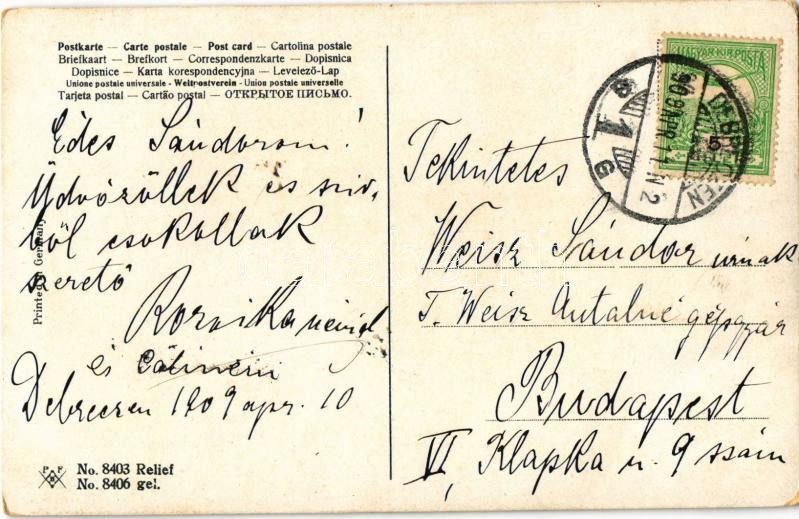 Postkarte — Carte postale — Post card — Cartolina postale
Briefkaart — Brefkort — Correspondenzkarte — Dopisnica
Dopisnice — Karta korespondencyjna — Levelező-Lap
Unione postale universale - Weltpostverein - Union postale universelle
Tarjeta postal — Cartão postal — ОТКРЫТОЕ ПИСЬМО.
Édes Sándorom!
Üdvözöllek és szív-
ből csokollak
szerető
Rozsika
és
Debreczen 1909 apr. 10
Printed in Germany
P F B
No. 8403 Relief
No. 8406 gel.
MAGYAR KIR. POSTA
DEBRECZEN
Tekintetes
Weisz Sándor úrnak
T. Weisz Antalné gépgyár
Budapest
VI, Klapka u. 9 szám